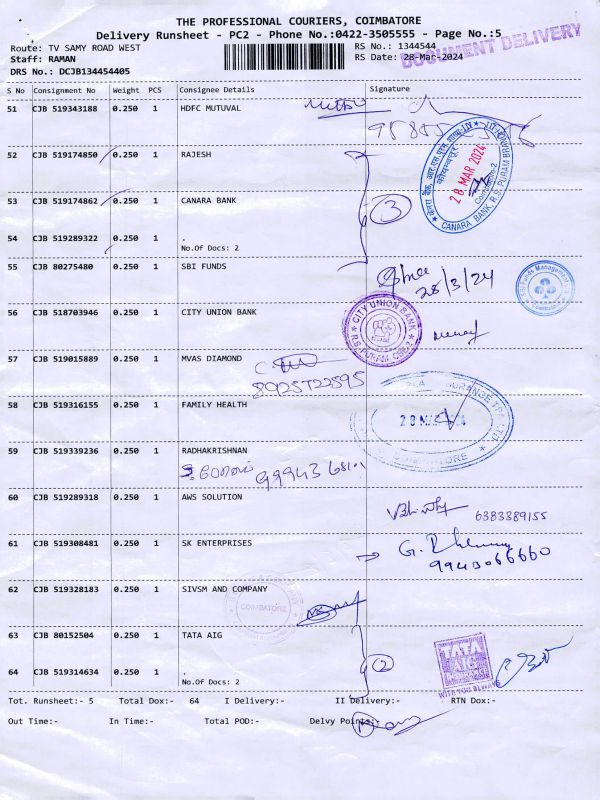 THE PROFESSIONAL COURIERS, COIMBATORE
Delivery Runsheet - PC2 - Phone No.:0422-3505555 - Page No.:5
Route: TV SAMY ROAD WEST
RS No.: 1344544
Staff: RAMAN
RS Date: 28-Mar-2024
DOCUMENT DELIVERY
DRS No.: DCJB134454405
S No Consignment No Weight PCS Consignee Details Signature
51 CJB 519343188 0.250 1 HDFC MUTUVAL
52 CJB 519174850 0.250 1 RAJESH
28 MAR 2024
CANARA BANK, R.S. PURAM BRANCH
53 CJB 519174862 0.250 1 CANARA BANK
3
54 CJB 519289322 0.250 1 .
No.Of Docs: 2
55 CJB 80275480 0.250 1 SBI FUNDS
28/3/24
SBI Funds Management
56 CJB 518703946 0.250 1 CITY UNION BANK
CITY UNION BANK
R.S. PURAM, CBE-2
57 CJB 519015889 0.250 1 MVAS DIAMOND
8925722595
58 CJB 519316155 0.250 1 FAMILY HEALTH
COIMBATORE
59 CJB 519339236 0.250 1 RADHAKRISHNAN
60 CJB 519289318 0.250 1 AWS SOLUTION
6383389155
61 CJB 519308481 0.250 1 SK ENTERPRISES
9943066660
62 CJB 519328183 0.250 1 SIVSM AND COMPANY
COIMBATORE
63 CJB 80152504 0.250 1 TATA AIG
TATA
AIG
WITH YOU ALWAYS
64 CJB 519314634 0.250 1 .
2
No.Of Docs: 2
Tot. Runsheet:- 5 Total Dox:- 64 I Delivery:- II Delivery:- RTN Dox:-
Out Time:- In Time:- Total POD:- Delvy Points:-